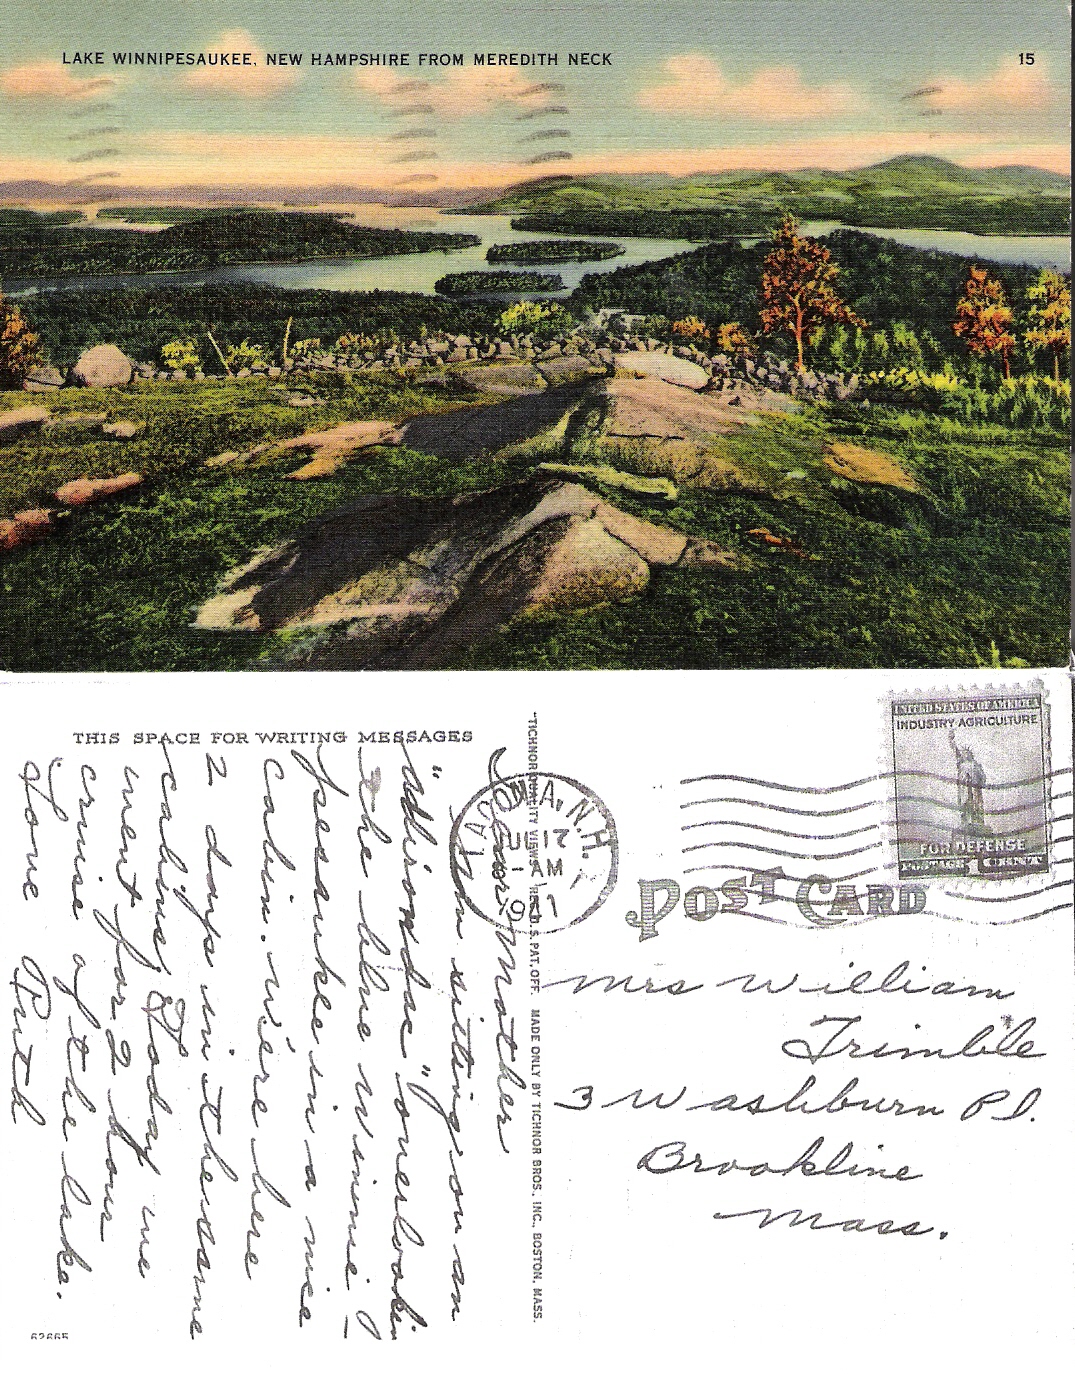 LAKE WINNIPESAUKEE, NEW HAMPSHIRE FROM MEREDITH NECK
15
THIS SPACE FOR WRITING MESSAGES
Dear Mother
I'm sitting on an
"Adirondac" overlookin
The blue Winni-
pesaukee in a nice
cabin. We're here
2 days in the same
cabin. Today we
went for 2 hour
cruise of the lake.
Love Ruth
62665
"TICHNOR QUALITY VIEWS," REG. U. S. PAT. OFF. MADE ONLY BY TICHNOR BROS., INC., BOSTON, MASS.
LACONIA, N.H.
17
1 - AM
1941
UNITED STATES OF AMERICA
INDUSTRY AGRICULTURE
FOR DEFENSE
POSTAGE 1 CENT
POST CARD
Mrs William
Trimble
3 Washburn Pl.
Brookline
Mass.